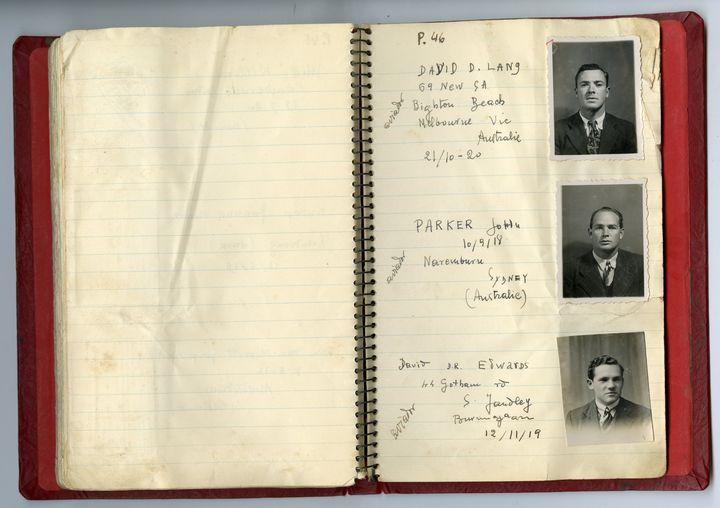 P. 46
DAVID D. LANG
69 NEW ST
Bighton Beach
Melbourne Vic
Australie
21/10-20
aviador
PARKER John
10/9/18
Naremburn
SYDNEY
(Australie)
aviador
David D.R. EDWARDS
44 Gotham rd
S. Yardley
12/11/19
aviador